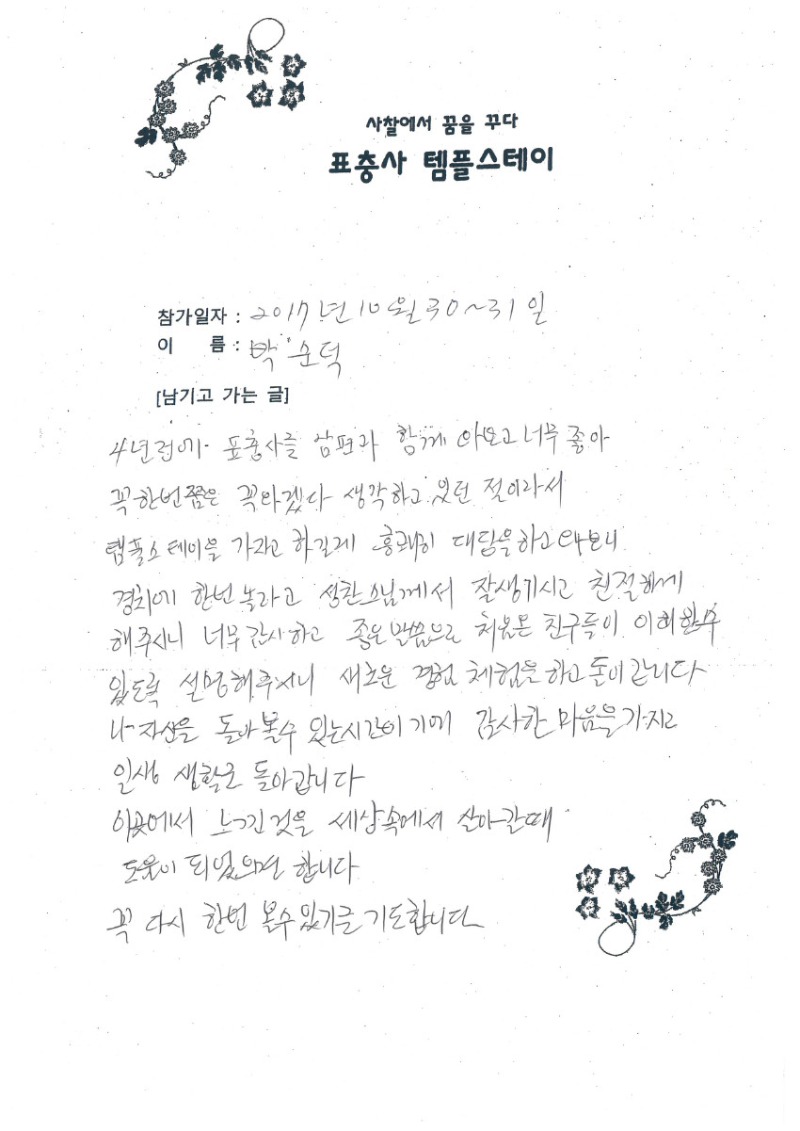 사찰에서 꿈을 꾸다
표충사 템플스테이
참가일자 : 2017년 10월 30~31일
이 름 : 박순덕
[남기고 가는 글]
4년전에 표충사를 남편과 함께 와보고 너무 좋아
꼭 한번쯤은 꼭 와겠다 생각하고 있던 절이라서
템플스테이를 가자고 하길게 흥쾌히 대답을 하고 와보니
경치에 한번 녹라고 스님께서 잘생기시고 친절하게
해주시니 너무 감사하고 좋은 말씀으로 처음온 친구들이 이해할수
있도록 설명해주시니 새로운 경험 체험을 하고 돌이 갑니다
나 자신을 돌아 볼수 있는 시간이기에 감사한 마음을 가지고
일생 생활로 돌아갑니다
이곳에서 느낀것을 세상속에서 살아갈때
도움이 되었으면 합니다
꼭 다시 한번 올수 있기를 기도합니다